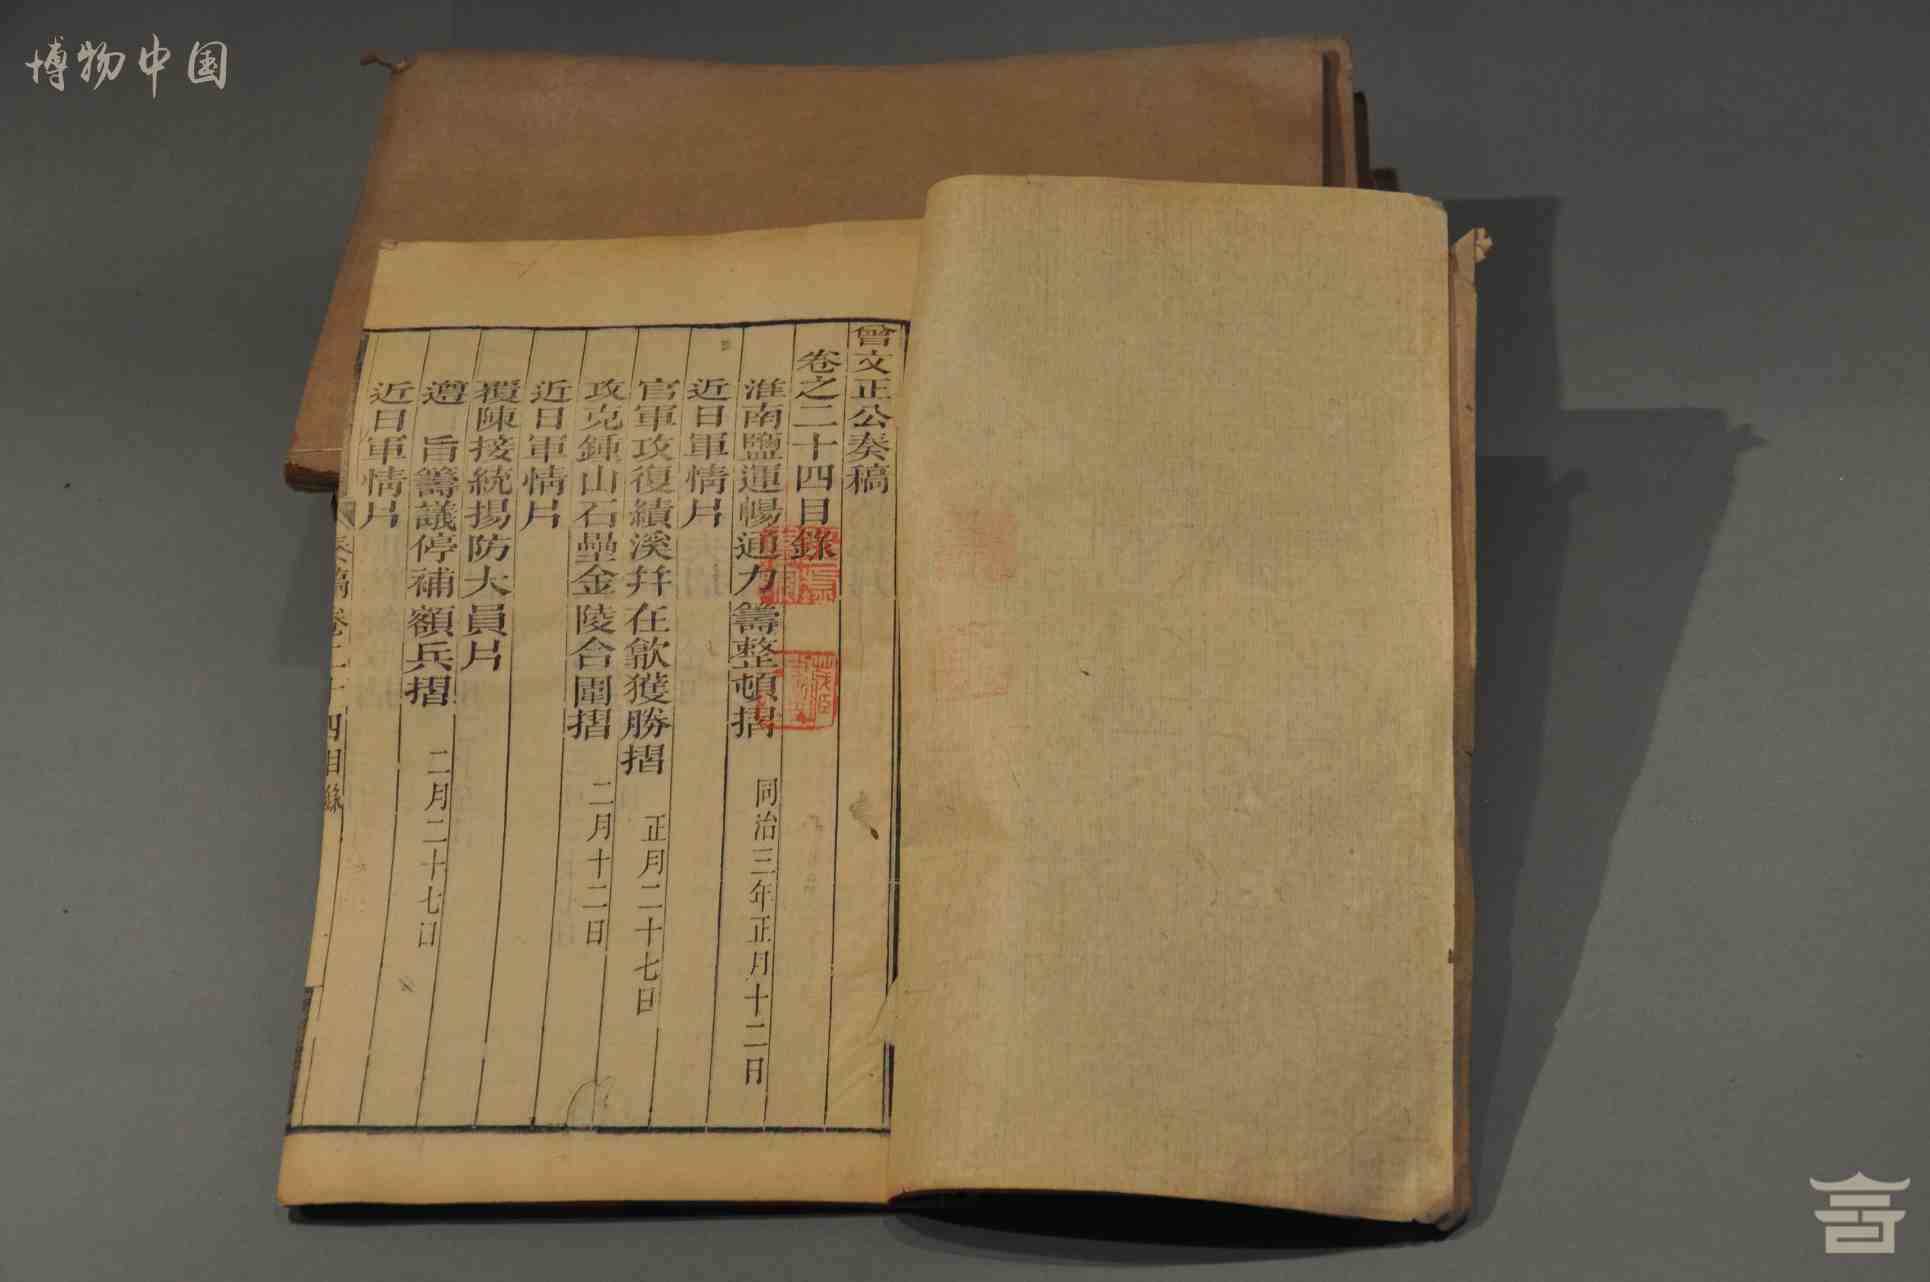 博物中国
曾文正公奏稿
卷之二十四目錄
淮南鹽運暢通力籌整頓摺 同治三年正月十二日
近日軍情片
官軍攻復績溪幷在歙獲勝摺 正月二十七日
攻克鍾山石壘金陵合圍摺 二月十二日
近日軍情片
覆陳接統揚防大員片
遵 旨籌議停補額兵摺 二月二十七日
近日軍情片
奏稿卷二十四目錄